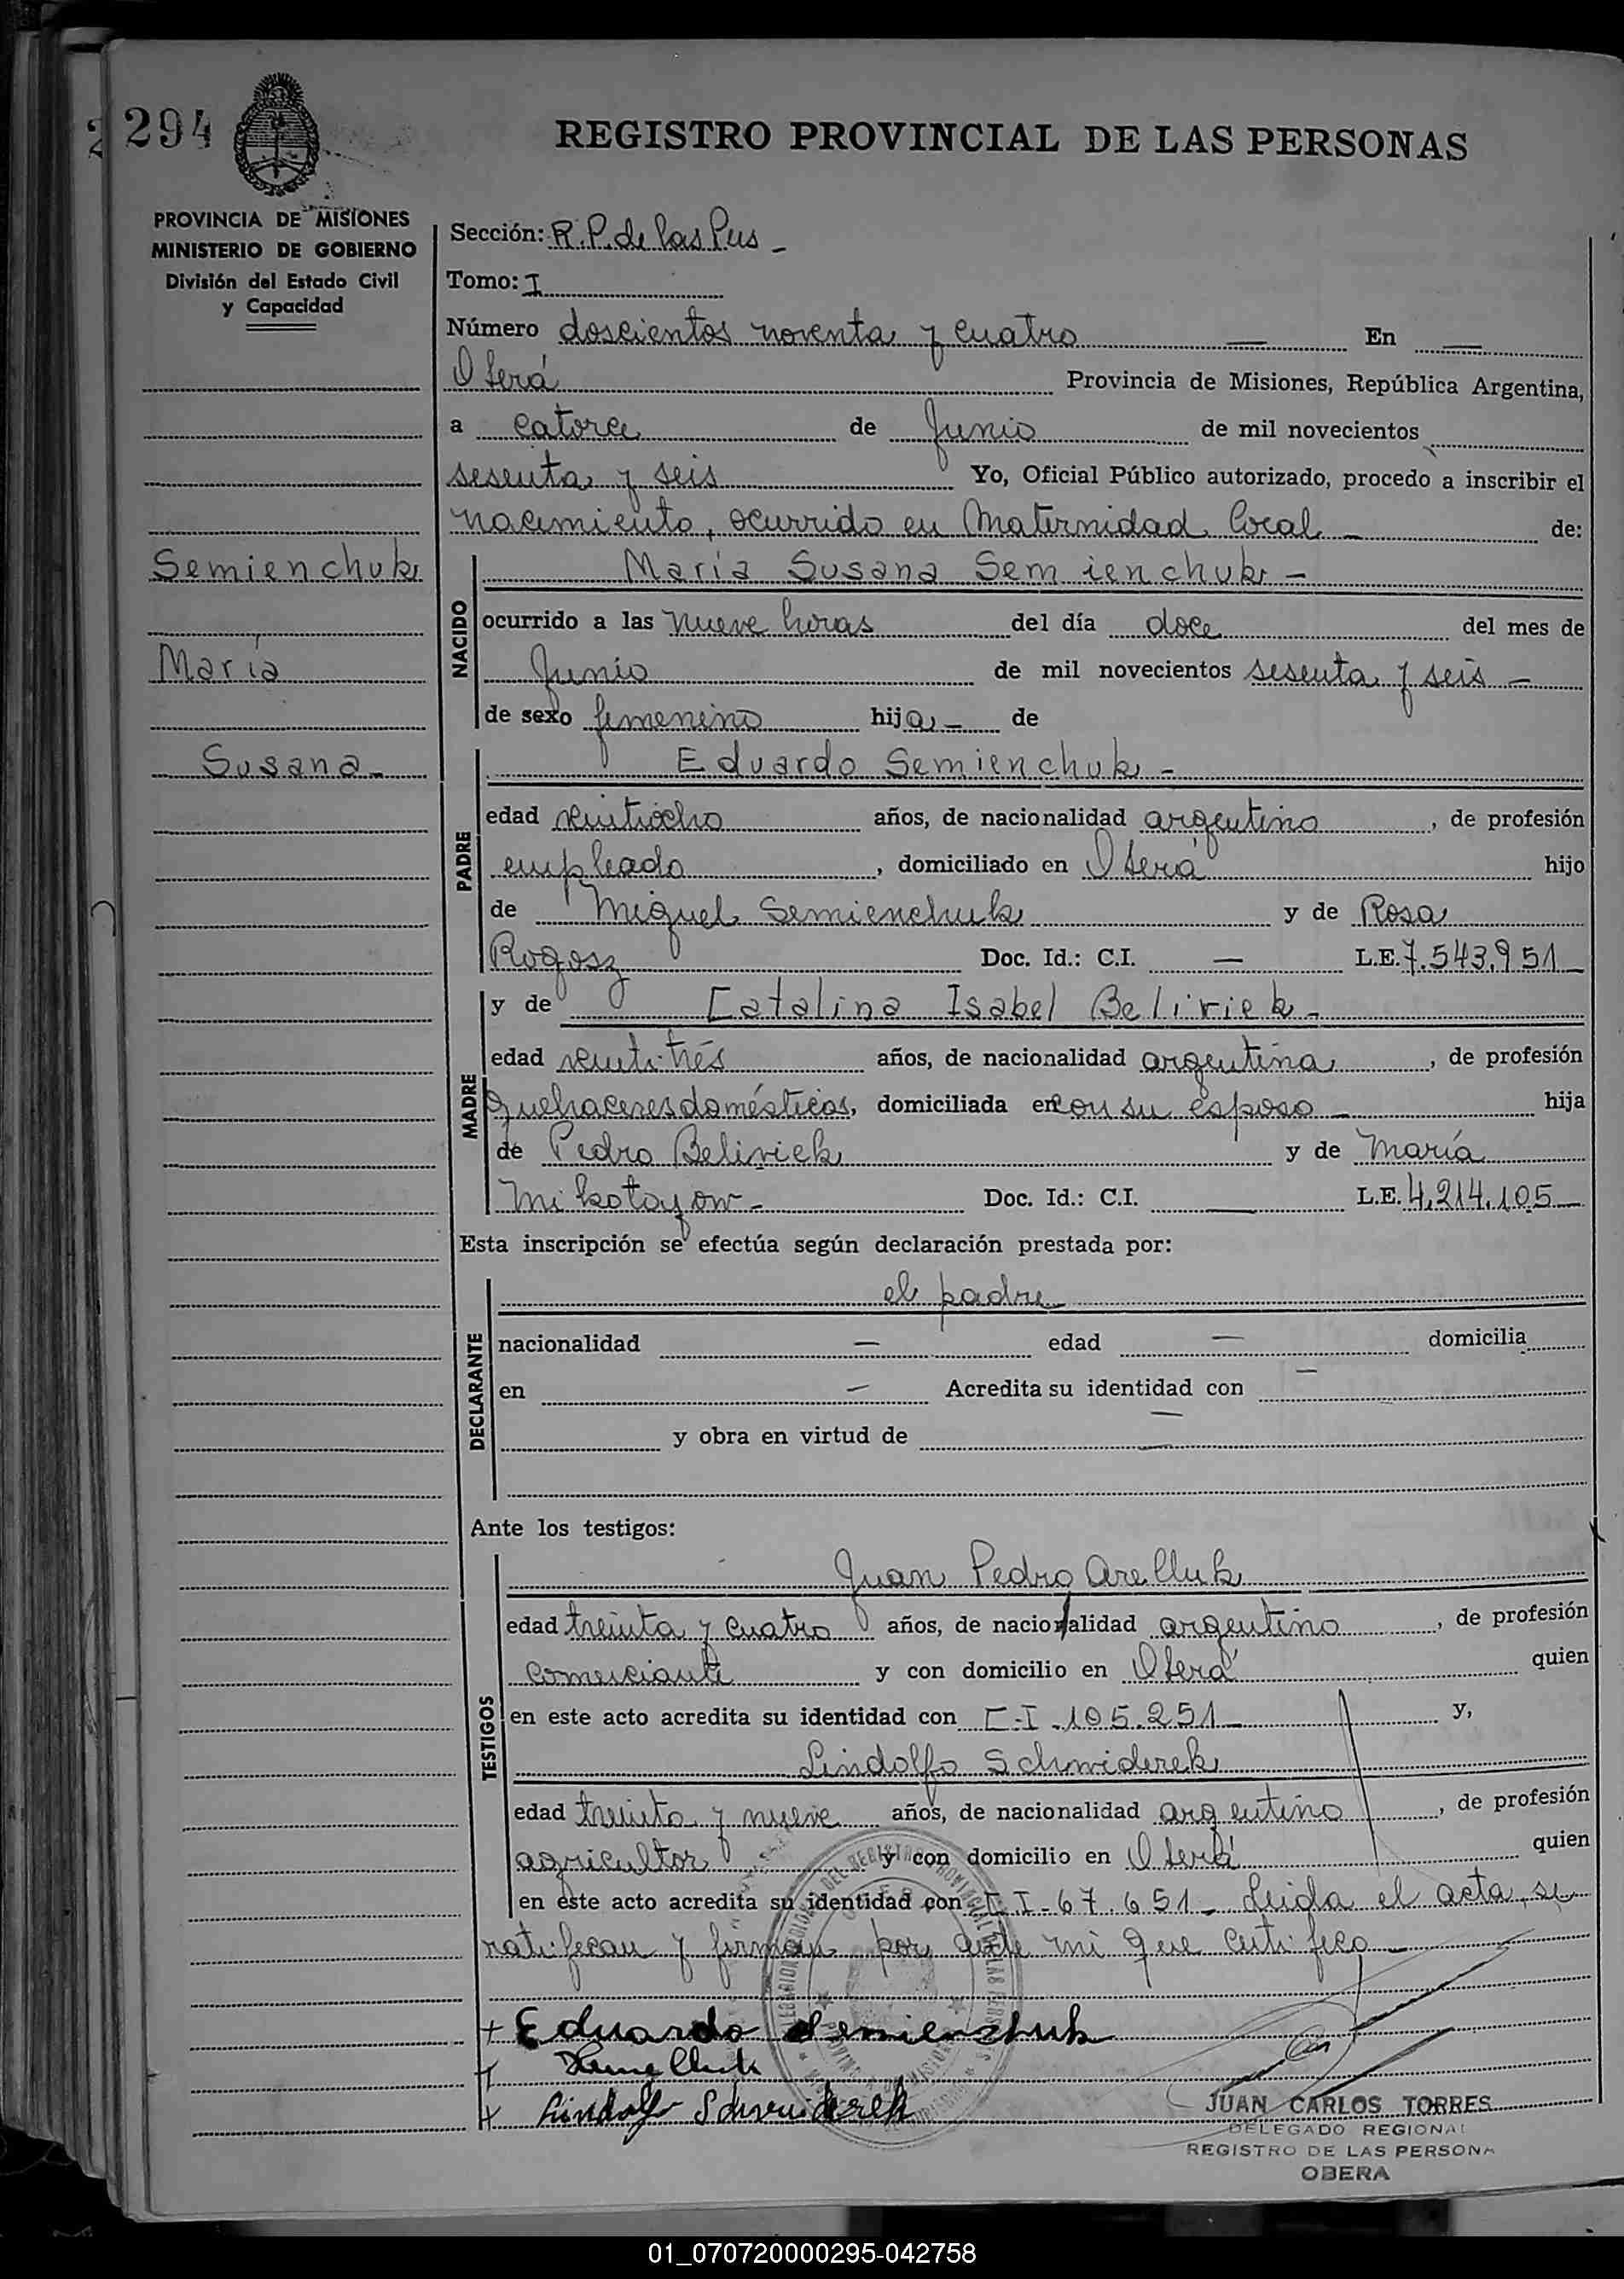 294
REGISTRO PROVINCIAL DE LAS PERSONAS
PROVINCIA DE MISIONES
MINISTERIO DE GOBIERNO
División del Estado Civil
y Capacidad
Semienchuk
María
Susana
Sección: R.P. de las Pers
Tomo: I
Número doscientos noventa y cuatro — En —
Oberá Provincia de Misiones, República Argentina,
a catorce de Junio de mil novecientos
sesenta y seis Yo, Oficial Público autorizado, procedo a inscribir el
nacimiento, ocurrido en Maternidad Local — de:
NACIDO
María Susana Semienchuk –
ocurrido a las nueve horas del día doce del mes de
Junio de mil novecientos sesenta y seis –
de sexo femenino hija – de
PADRE
Eduardo Semienchuk –
edad veintiocho años, de nacionalidad argentino, de profesión
empleado, domiciliado en Oberá hijo
de Miguel Semienchuk y de Rosa
Rogosz Doc. Id.: C.I. — L.E. 7.543.951
MADRE
y de Catalina Isabel Beliviek –
edad veintitrés años, de nacionalidad argentina, de profesión
quehaceres domésticos, domiciliada en con su esposo – hija
de Pedro Beliviek y de María
Doc. Id.: C.I. — L.E. 4.214.105
Esta inscripción se efectúa según declaración prestada por:
DECLARANTE
el padre
nacionalidad — edad — domicilia
en — Acredita su identidad con —
y obra en virtud de —
Ante los testigos:
TESTIGOS
Juan Pedro
edad treinta y cuatro años, de nacionalidad argentino, de profesión
comerciante y con domicilio en Oberá quien
en este acto acredita su identidad con C.I. 105.251 y,
Lindolfo Schwiderek
edad treinta y nueve años, de nacionalidad argentino, de profesión
agricultor y con domicilio en Oberá quien
en este acto acredita su identidad con C.I. 67.651 – Leida el acta, se
ratifican y firman por ante mi que certifico –
+ Eduardo Semienchuk
+ Lindolfo Schwiderek
JUAN CARLOS TORRES
DELEGADO REGIONAL
REGISTRO DE LAS PERSONA
OBERA
01_070720000295-042758